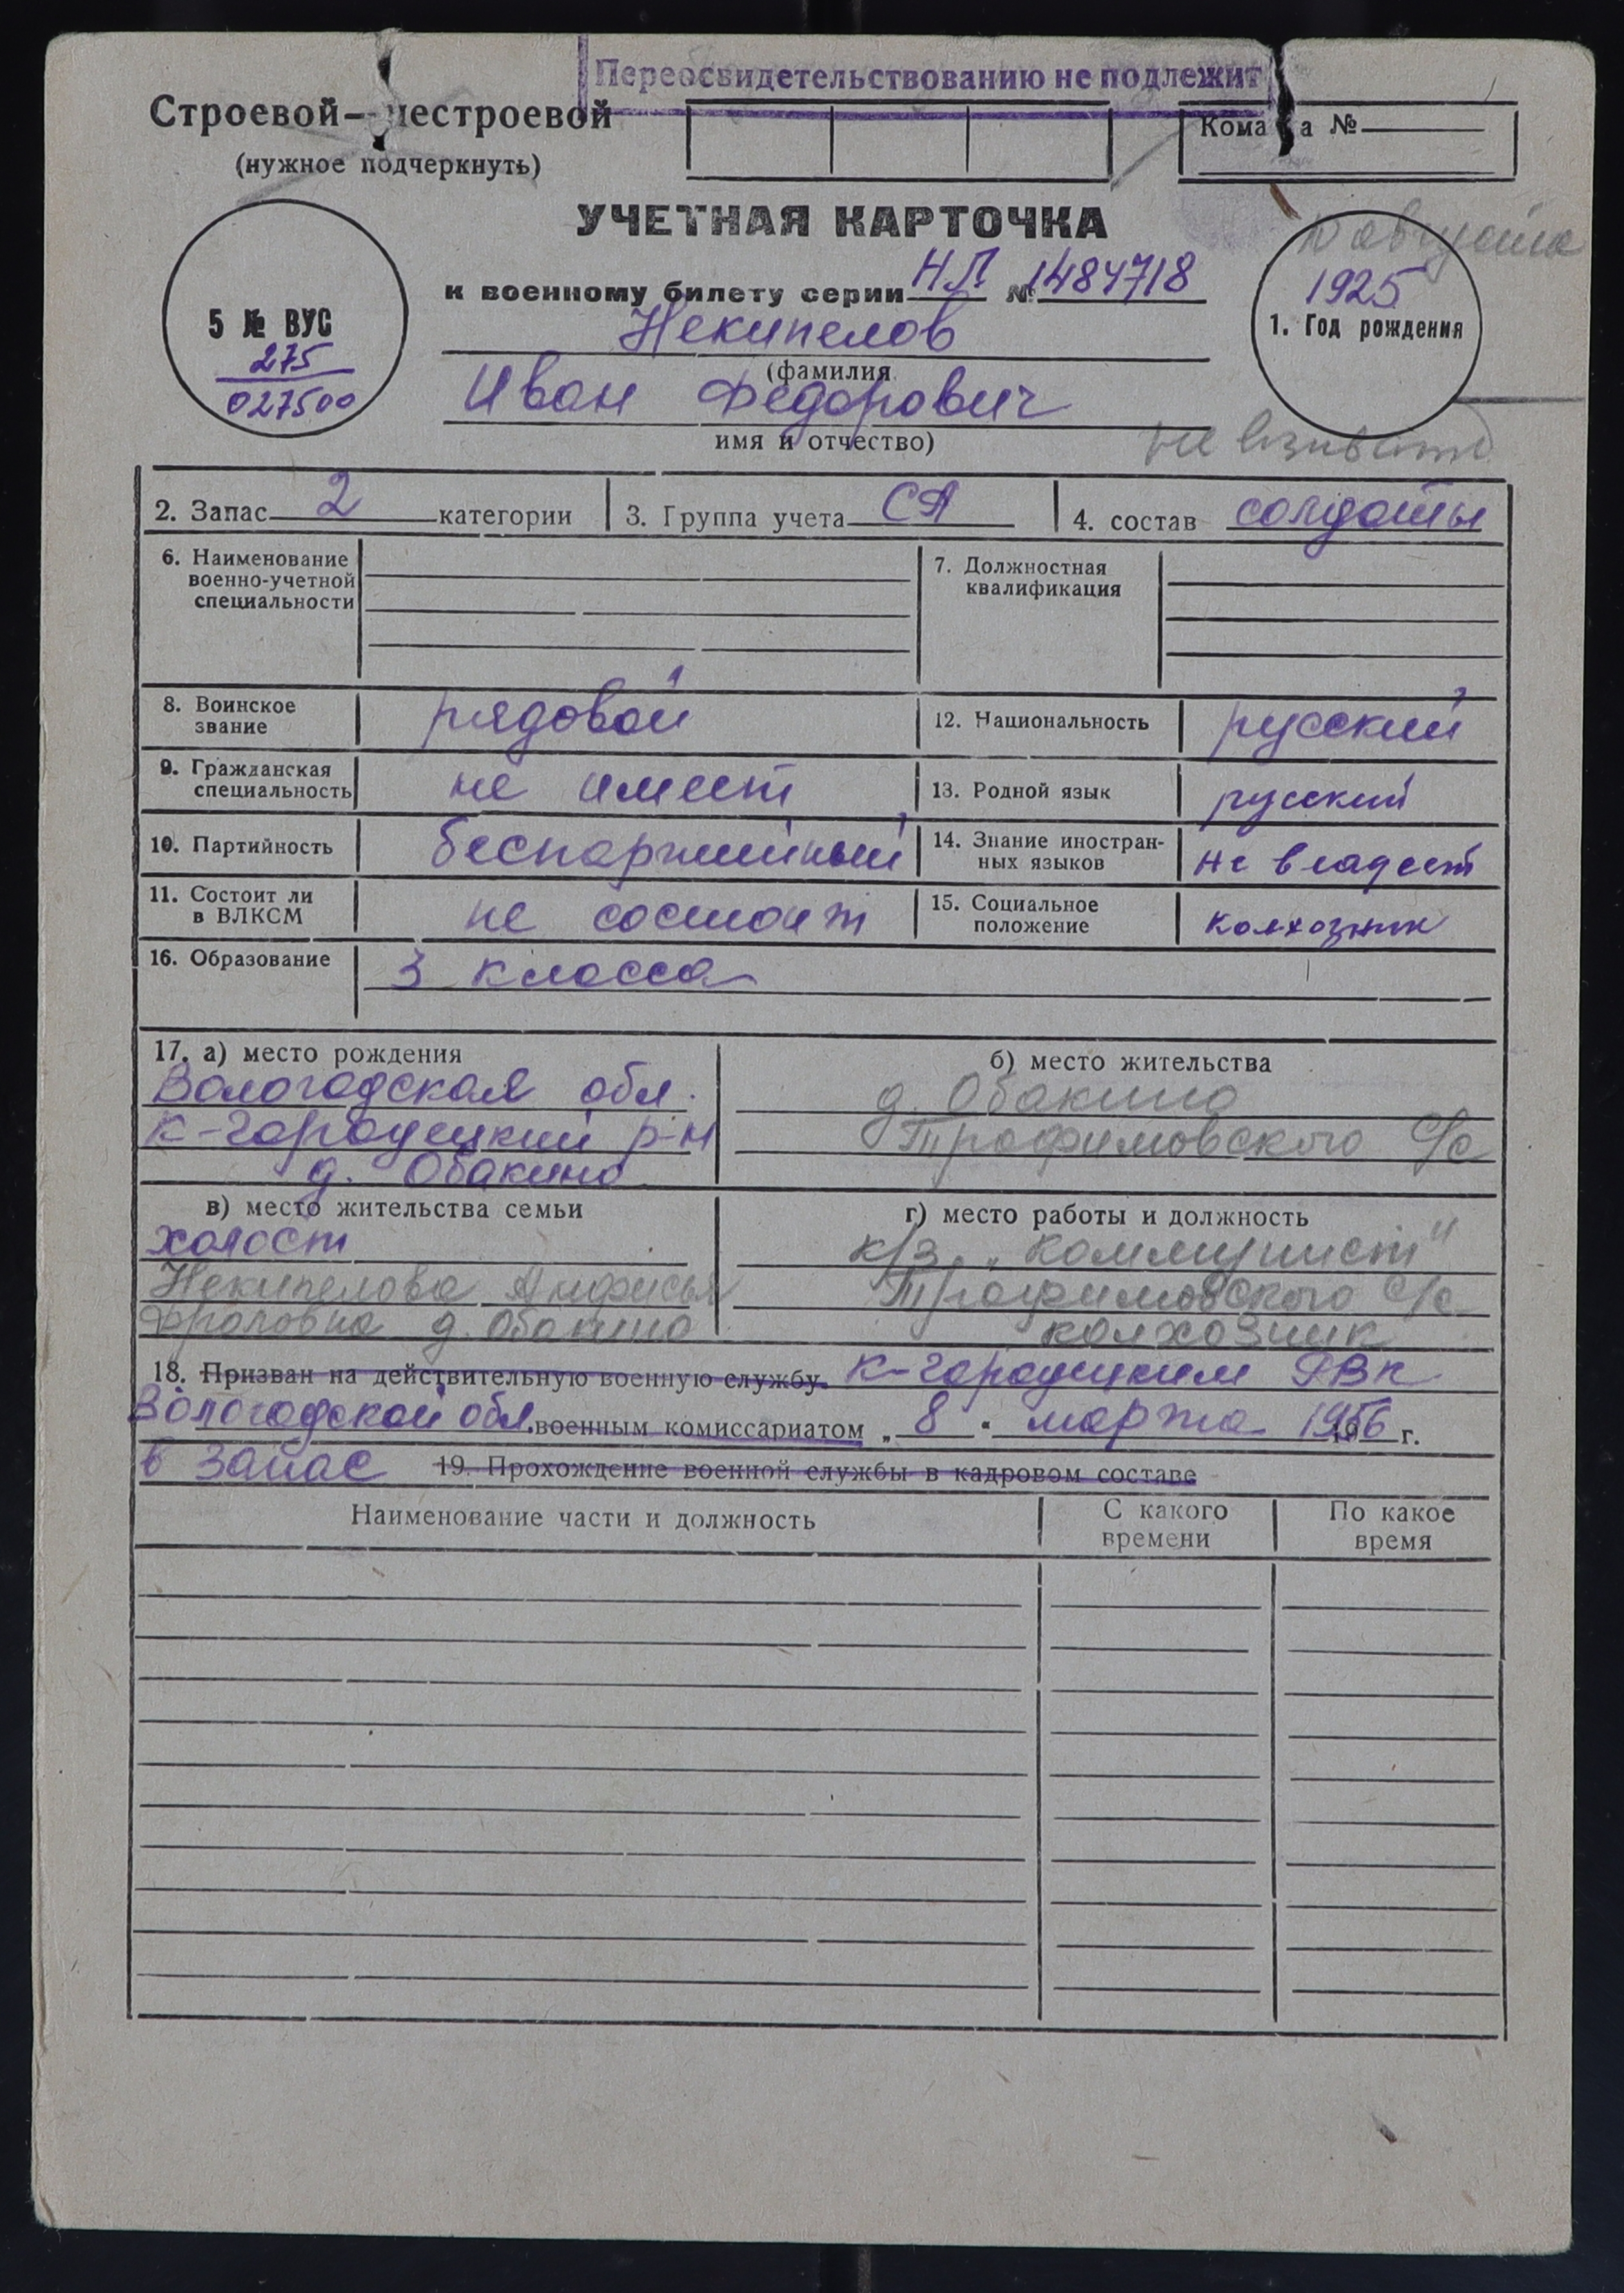 Переосвидетельствованию не подлежит
Строевой— нестроевой
(нужное подчеркнуть)
Кома а №
УЧЕТНАЯ КАРТОЧКА
к военному билету серии НЛ № 1484718
Некипелов
(фамилия
Иван Федорович
имя и отчество)
5 № ВУС
275
027500
августа
1925
1. Год рождения
не
2. Запас 2 категории
3. Группа учета СА
4. состав солдаты
6. Наименование
военно-учетной
специальности
7. Должностная
квалификация
8. Воинское
звание
рядовой
12. Национальность
русский
9. Гражданская
специальность
не имеет
13. Родной язык
русский
10. Партийность
беспартийный
14. Знание иностран-
ных языков
не владеет
11. Состоит ли
в ВЛКСМ
не состоит
15. Социальное
положение
колхозник
16. Образование
3 класса
17. а) место рождения
Вологодская обл.
К-городецкий р-н
д. Обакино
б) место жительства
д. Обакино
Трофимовского с/с
в) место жительства семьи
холост
Некипелова Анфисья
Фроловна д. Обакино
г) место работы и должность
к/з „Коммунист"
Трофимовского с/с
колхозник
18. Призван на действительную военную службу К-городецким РВК
Вологодской обл. военным комиссариатом „ 8 " марта 1956 г.
в запас 19. Прохождение военной службы в кадровом составе
Наименование части и должность
С какого
времени
По какое
время